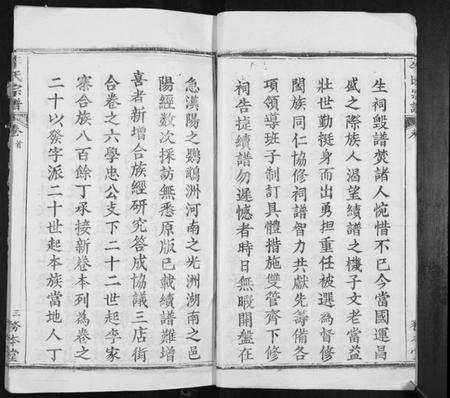 生祠毀譜焚諸人惋惜不已今當國運昌
盛之際族人渴望續譜之機子文老當益
壯世勤挺身而出勇担重任被選為督修
闔族同仁協修祠譜智力共獻先籌備各
項領導班子制訂具體措施雙管齊下修
祠告㨗續譜勿遲憾者時日無暇開盤在
急漢陽之鸚鵡洲河南之光洲湖南之邑
陽經数次採訪無悉原版已載續譜難增
喜者新增合族經研究答成協議三店街
合卷之六學忠公支下二十二世起李家
寨合族八百餘丁承接新卷本列為卷之
二十以癸字派二十世起本族當地人丁
氏宗譜
卷首
三